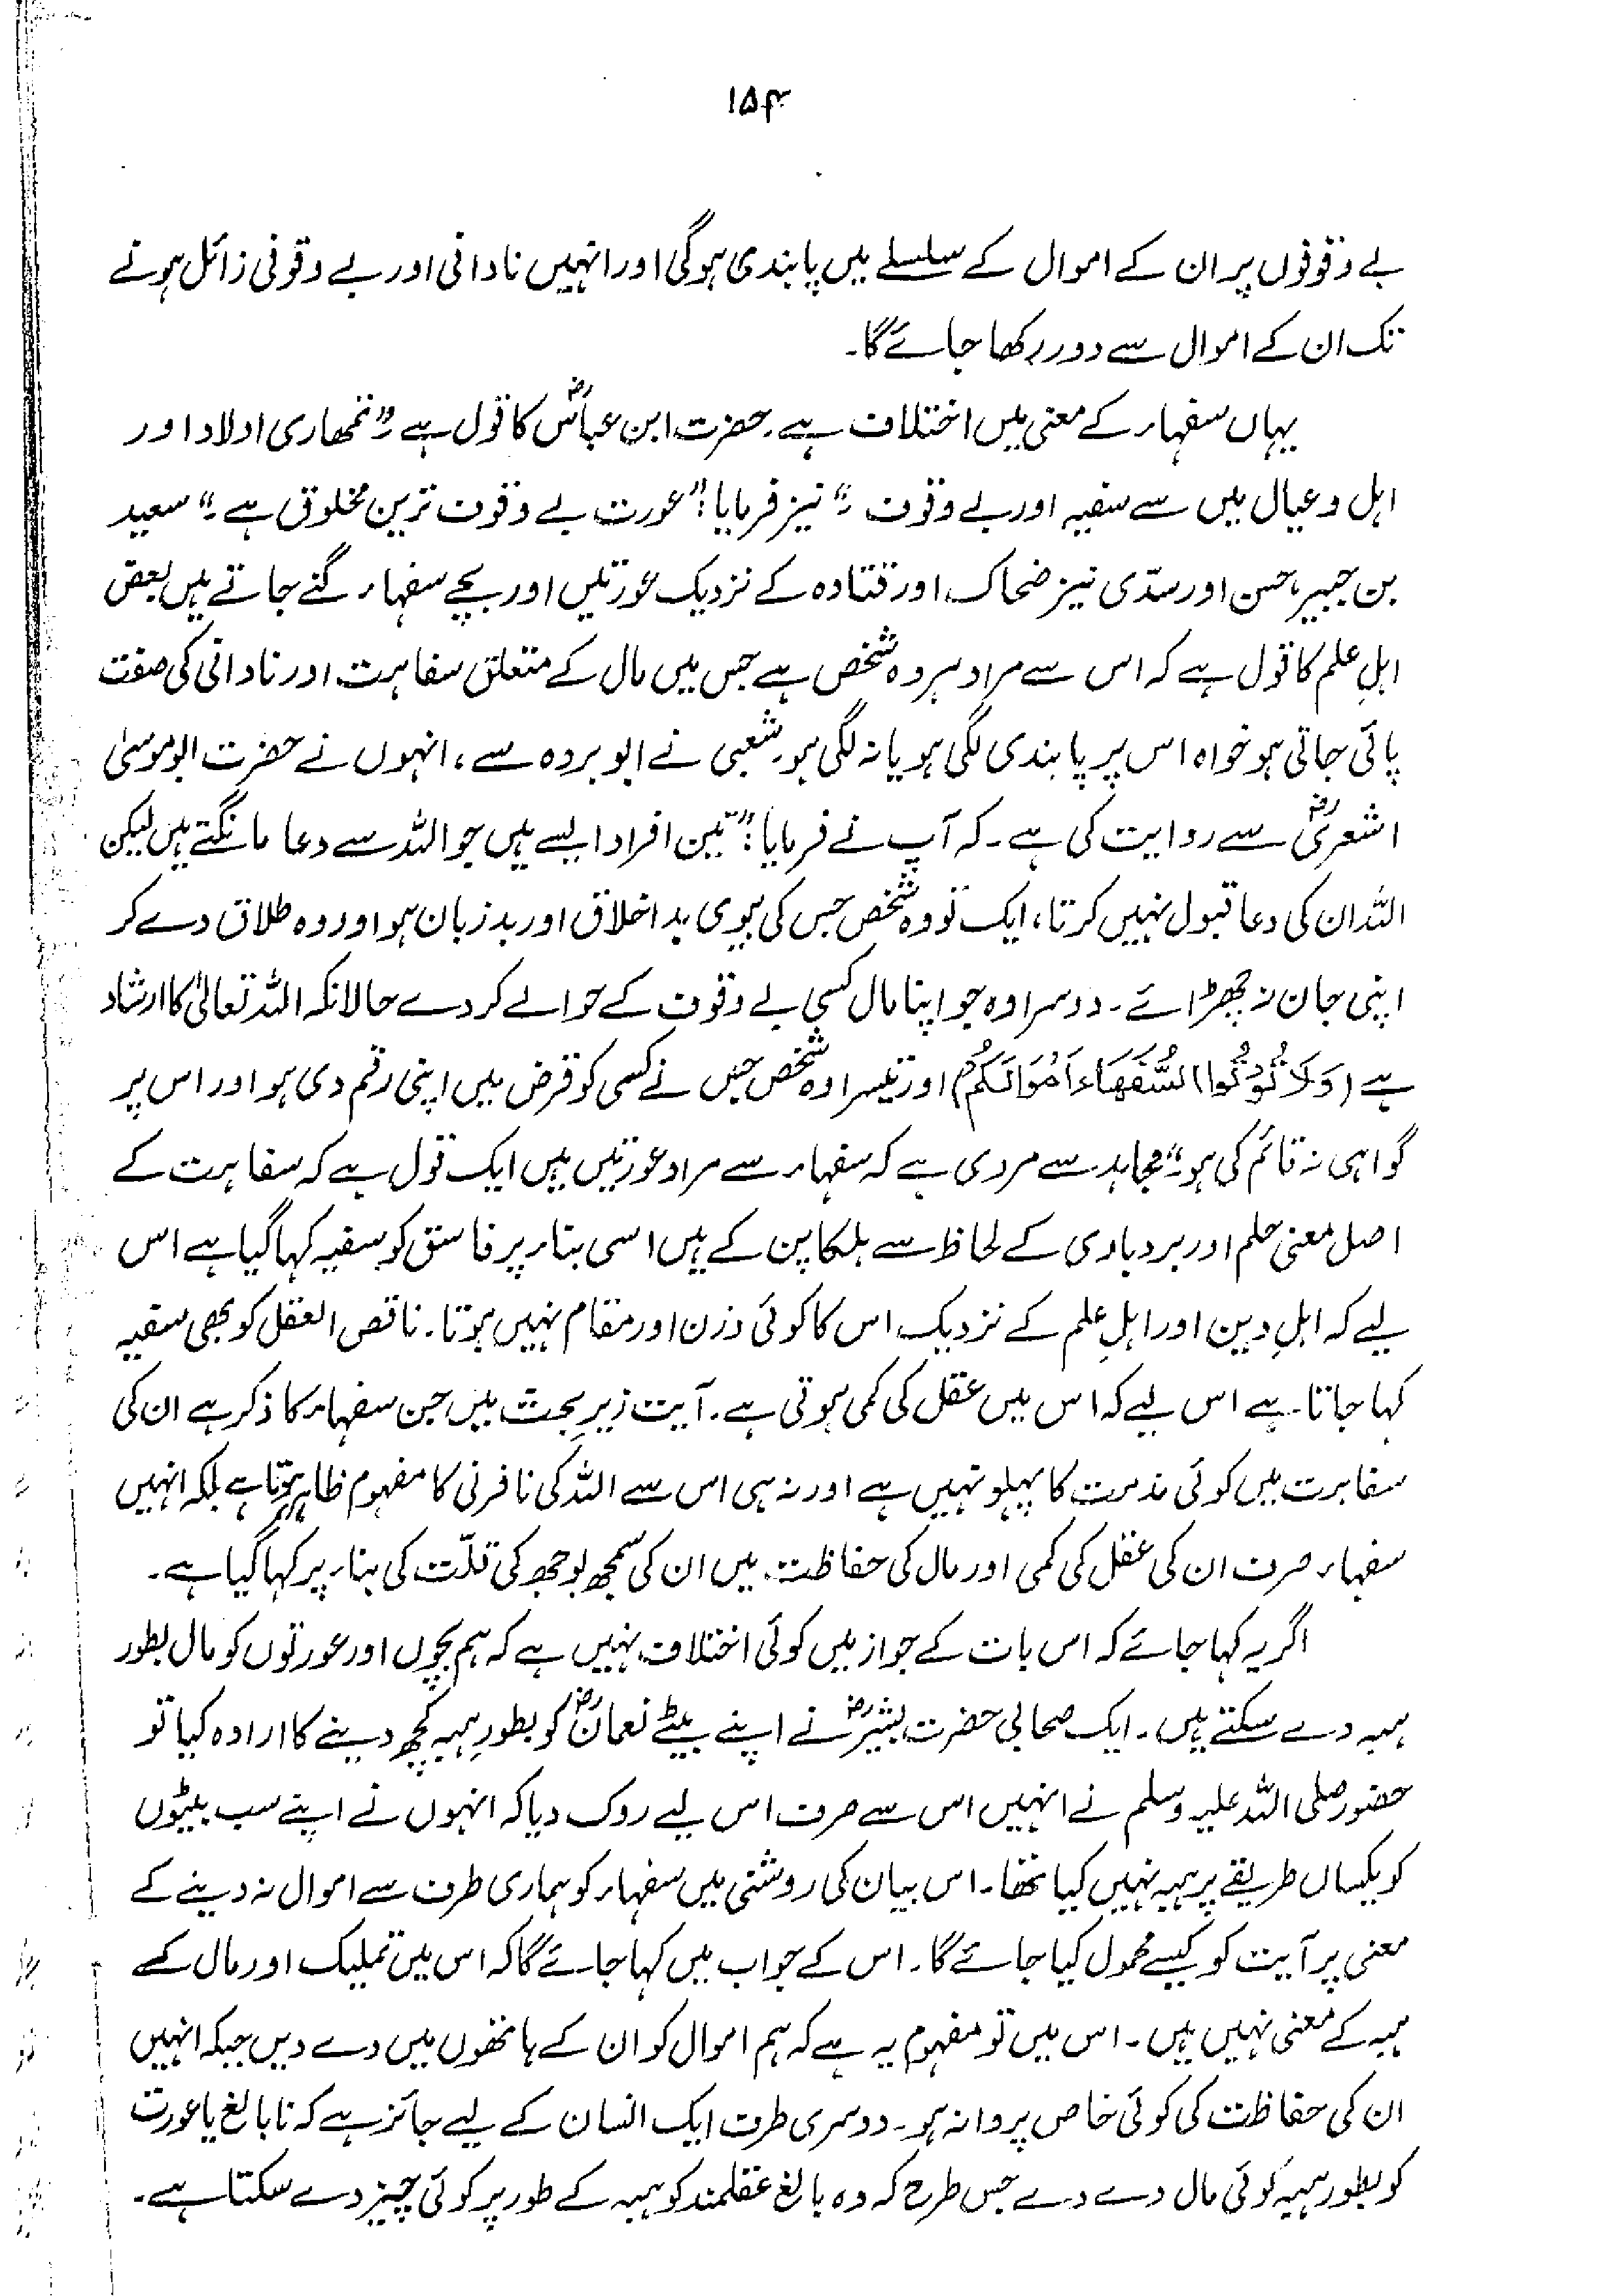 ۱۵۴
بے وقوفوں پر ان کے اموال کے سلسلے میں پابندی ہوگی اور انہیں نادانی اور بے وقوفی زائل ہونے
تک ان کے اموال سے دور رکھا جائے گا۔
یہاں سفہاء کے معنی میں اختلاف ہے۔ حضرت ابن عباسؓ کا قول ہے "تمھاری اولاد اور
اہل وعیال میں سے سفیہ اور بے وقوف ۔" نیز فرمایا: "عورت بے وقوف ترین مخلوق ہے۔" سعید
بن جبیر، حسن اور سدّی نیز ضحاک اور قتادہ کے نزدیک عورتیں اور بچے سفہاء گنے جاتے ہیں بعض
اہلِ علم کا قول ہے کہ اس سے مراد ہر وہ شخص ہے جس میں مال کے متعلق سفاہت اور نادانی کی صفت
پائی جاتی ہو خواہ اس پر پابندی لگی ہو یا نہ لگی ہو۔ شعبی نے ابو بردہ سے، انہوں نے حضرت ابو موسیٰ
اشعریؓ سے روایت کی ہے۔ کہ آپ نے فرمایا: "تین افراد ایسے ہیں جو اللہ سے دعا مانگتے ہیں لیکن
اللہ ان کی دعا قبول نہیں کرتا، ایک تو وہ شخص جس کی بیوی بد اخلاق اور بد زبان ہو اور وہ طلاق دے کر
اپنی جان نہ چھڑائے۔ دوسرا وہ جو اپنا مال کسی بے وقوف کے حوالے کر دے حالانکہ اللہ تعالیٰ کا ارشاد
ہے (وَلَا تُؤْتُوا السُّفَهَاءَ اَمْوَالَكُمُ) اور تیسرا وہ شخص جس نے کسی کو قرض میں اپنی رقم دی ہو اور اس پر
گواہی نہ قائم کی ہو۔" مجاہد سے مروی ہے کہ سفہاء سے مراد عورتیں ہیں ایک قول ہے کہ سفاہت کے
اصل معنی حلم اور بردباری کے لحاظ سے ہلکا پن کے ہیں اسی بناء پر فاسق کو سفیہ کہا گیا ہے اس
لیے کہ اہلِ دین اور اہلِ علم کے نزدیک اس کا کوئی وزن اور مقام نہیں ہوتا۔ ناقص العقل کو بھی سفیہ
کہا جاتا ہے اس لیے کہ اس میں عقل کی کمی ہوتی ہے۔ آیت زیرِ بحث میں جن سفہاء کا ذکر ہے ان کی
سفاہت میں کوئی مذمت کا پہلو نہیں ہے اور نہ ہی اس سے اللہ کی نافرنی کا مفہوم ظاہر ہوتا ہے بلکہ انہیں
سفہاء صرف ان کی عقل کی کمی اور مال کی حفاظت میں ان کی سمجھ بوجھ کی قلّت کی بناء پر کہا گیا ہے۔
اگر یہ کہا جائے کہ اس بات کے جواز میں کوئی اختلاف نہیں ہے کہ ہم بچوں اور عورتوں کو مال بطور
ہبہ دے سکتے ہیں۔ ایک صحابی حضرت بشیرؓ نے اپنے بیٹے نعمانؓ کو بطورِ ہبہ کچھ دینے کا ارادہ کیا تو
حضور صلی اللہ علیہ وسلم نے انہیں اس سے صرف اس لیے روک دیا کہ انہوں نے اپنے سب بیٹوں
کو یکساں طریقے پر ہبہ نہیں کیا تھا۔ اس بیان کی روشنی میں سفہاء کو ہماری طرف سے اموال نہ دینے کے
معنی پر آیت کو کیسے محمول کیا جائے گا۔ اس کے جواب میں کہا جائے گا کہ اس میں تملیک اور مال کے
ہبہ کے معنی نہیں ہیں۔ اس میں تو مفہوم یہ ہے کہ ہم اموال کو ان کے ہاتھوں میں دے دیں جبکہ انہیں
ان کی حفاظت کی کوئی خاص پروا نہ ہو۔ دوسری طرف ایک انسان کے لیے جائز ہے کہ نابالغ یا عورت
کو بطور ہبہ کوئی مال دے دے جس طرح کہ وہ بالغ عقلمند کو ہبہ کے طور پر کوئی چیز دے سکتا ہے۔